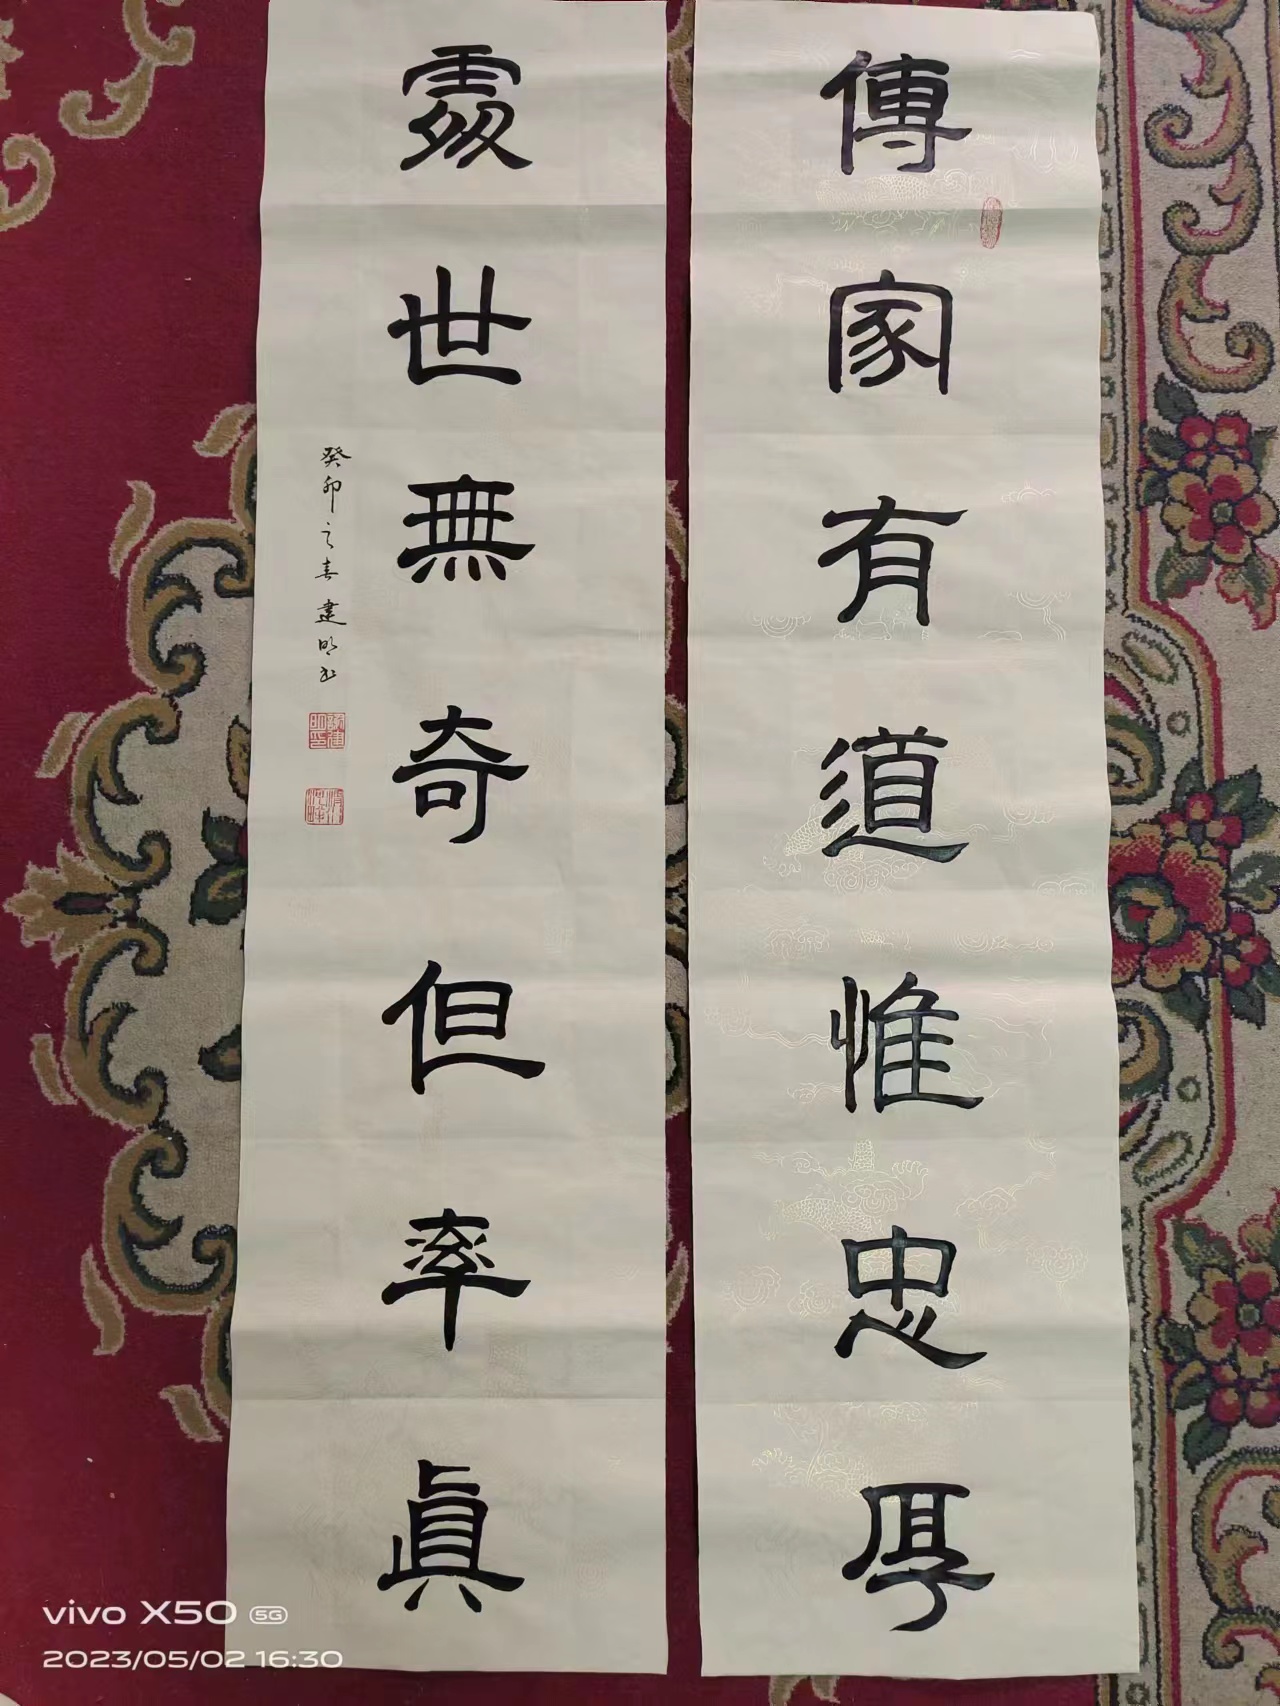 傳家有道惟忠厚
處世無奇但率真
癸卯之春建明书
vivo X50 5G
2023/05/02 16:30